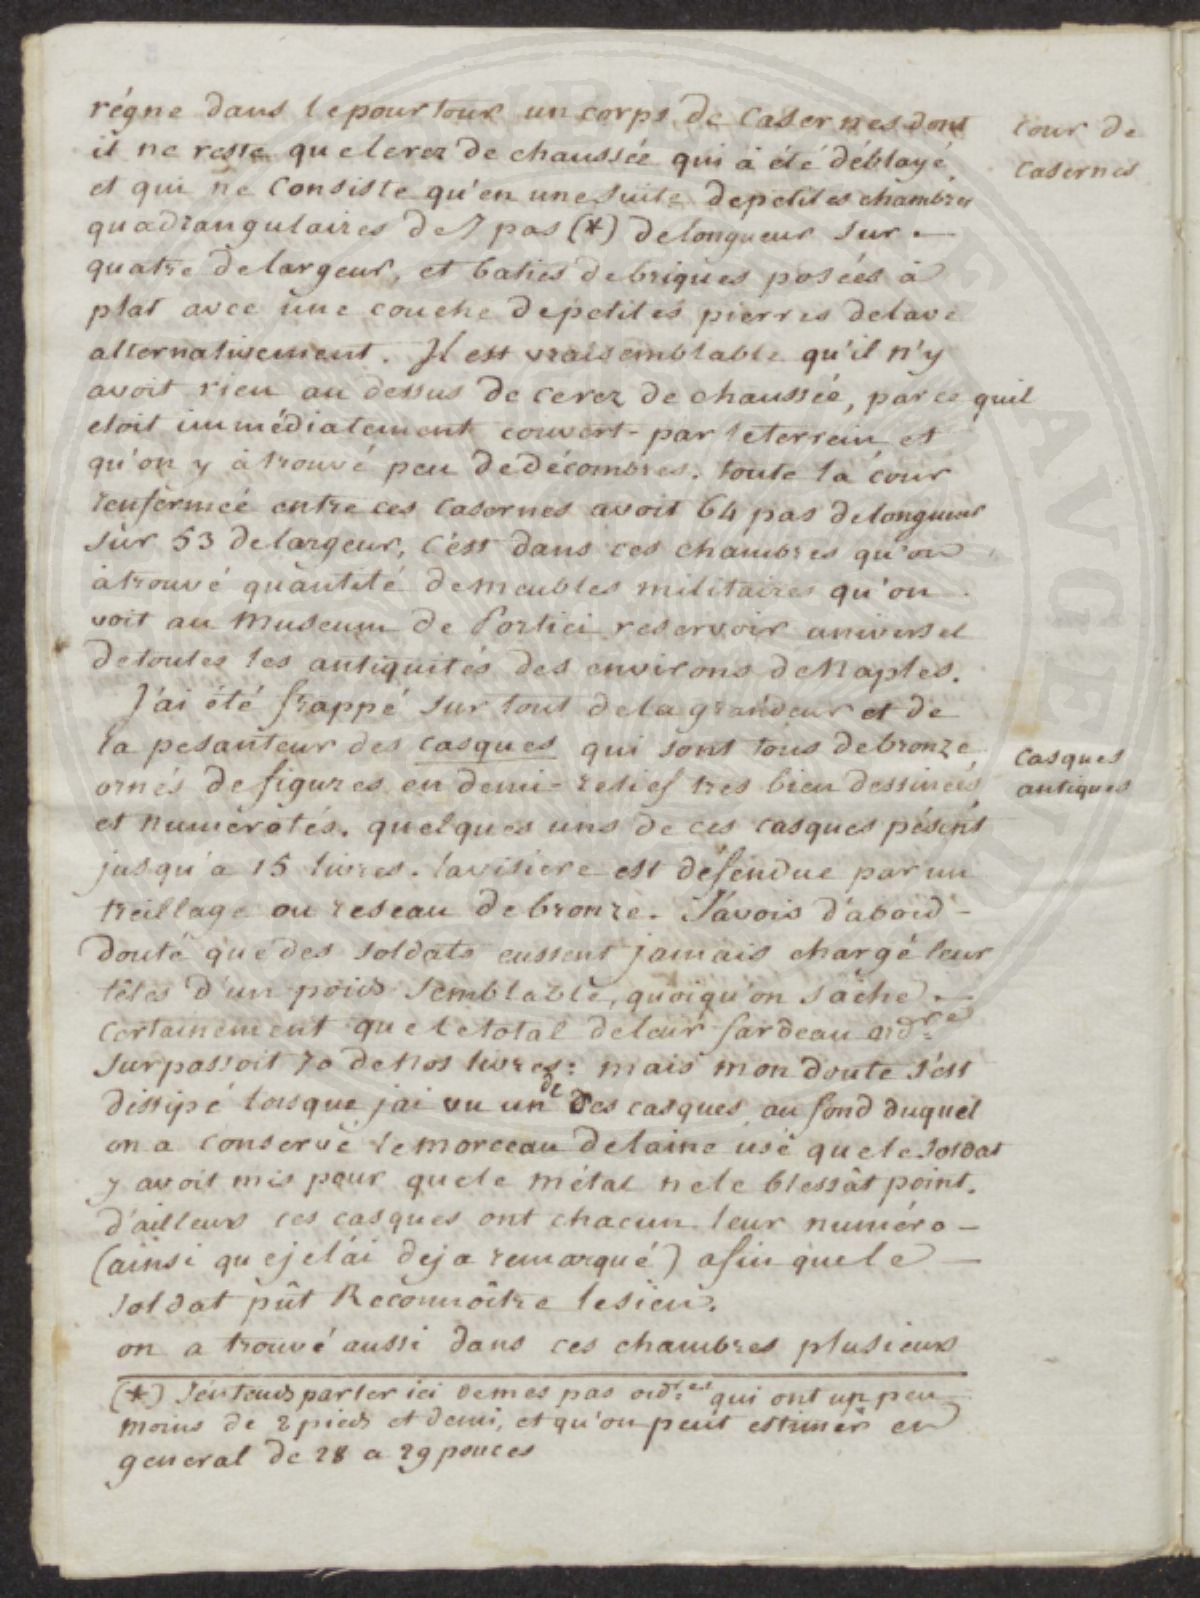 régne dans le pourtour un corps de Casernes dont
il ne reste que le rez de chaussée qui à été déblayé
et qui ne Consiste qu'en une suite de petites chambres
quadrangulaires de 7 pas (*) de longueur sur
quatre de largeur, et baties de briques posées à
plat avec une couche de petites pierres de lave
alternativement. Il est vraisemblable qu'il n'y
avoit rien au dessus de ce rez de chaussée, parce quil
etoit immédiatement couvert par le terrein et
qu'on y à trouvé peu de décombres. toute la cour
renfermée entre ces Casernes avoit 64 pas de longueur
sur 53 de largeur, C'est dans ces chambres qu'on
à trouvé quantité de meubles militaires qu'on
voit au Museum de Portici reservoir universel
de toutes les antiquités des environs de Naples.
J'ai été frappé sur tout de la grandeur et de
la pesanteur des casques qui sont tous de bronze
ornés de figures en demi-relief tres bien dessinées
et numérotés. quelques uns de ces casques pésent
jusqu'a 15 livres. la visiere est défendue par un
treillage ou reseau de bronze. J'avois d'abord
douté que des soldats eussent jamais chargé leur
têtes d'un poids semblable, quoiqu'on sache
certainement que le total de leur fardeau ord.re
surpassoit 70 de nos livres: mais mon doute s'est
dissipé lorsque j'ai vu un de ces casques au fond duquel
on a conservé le morceau de laine usé que le soldat
y avoit mis pour que le métal ne le blessât point.
d'ailleurs ces casques ont chacun leur numéro
(ainsi que je l'ai deja remarqué) afin que le
soldat pût Reconnoître le sien.
on a trouvé aussi dans ces chambres plusieurs
(*) J'entends parler ici de mes pas ord.res qui ont un peu
moins de 2 pieds et demi, et qu'on peut estimer en
general de 28 a 29 pouces
Cour de
Casernes
Casques
antiques